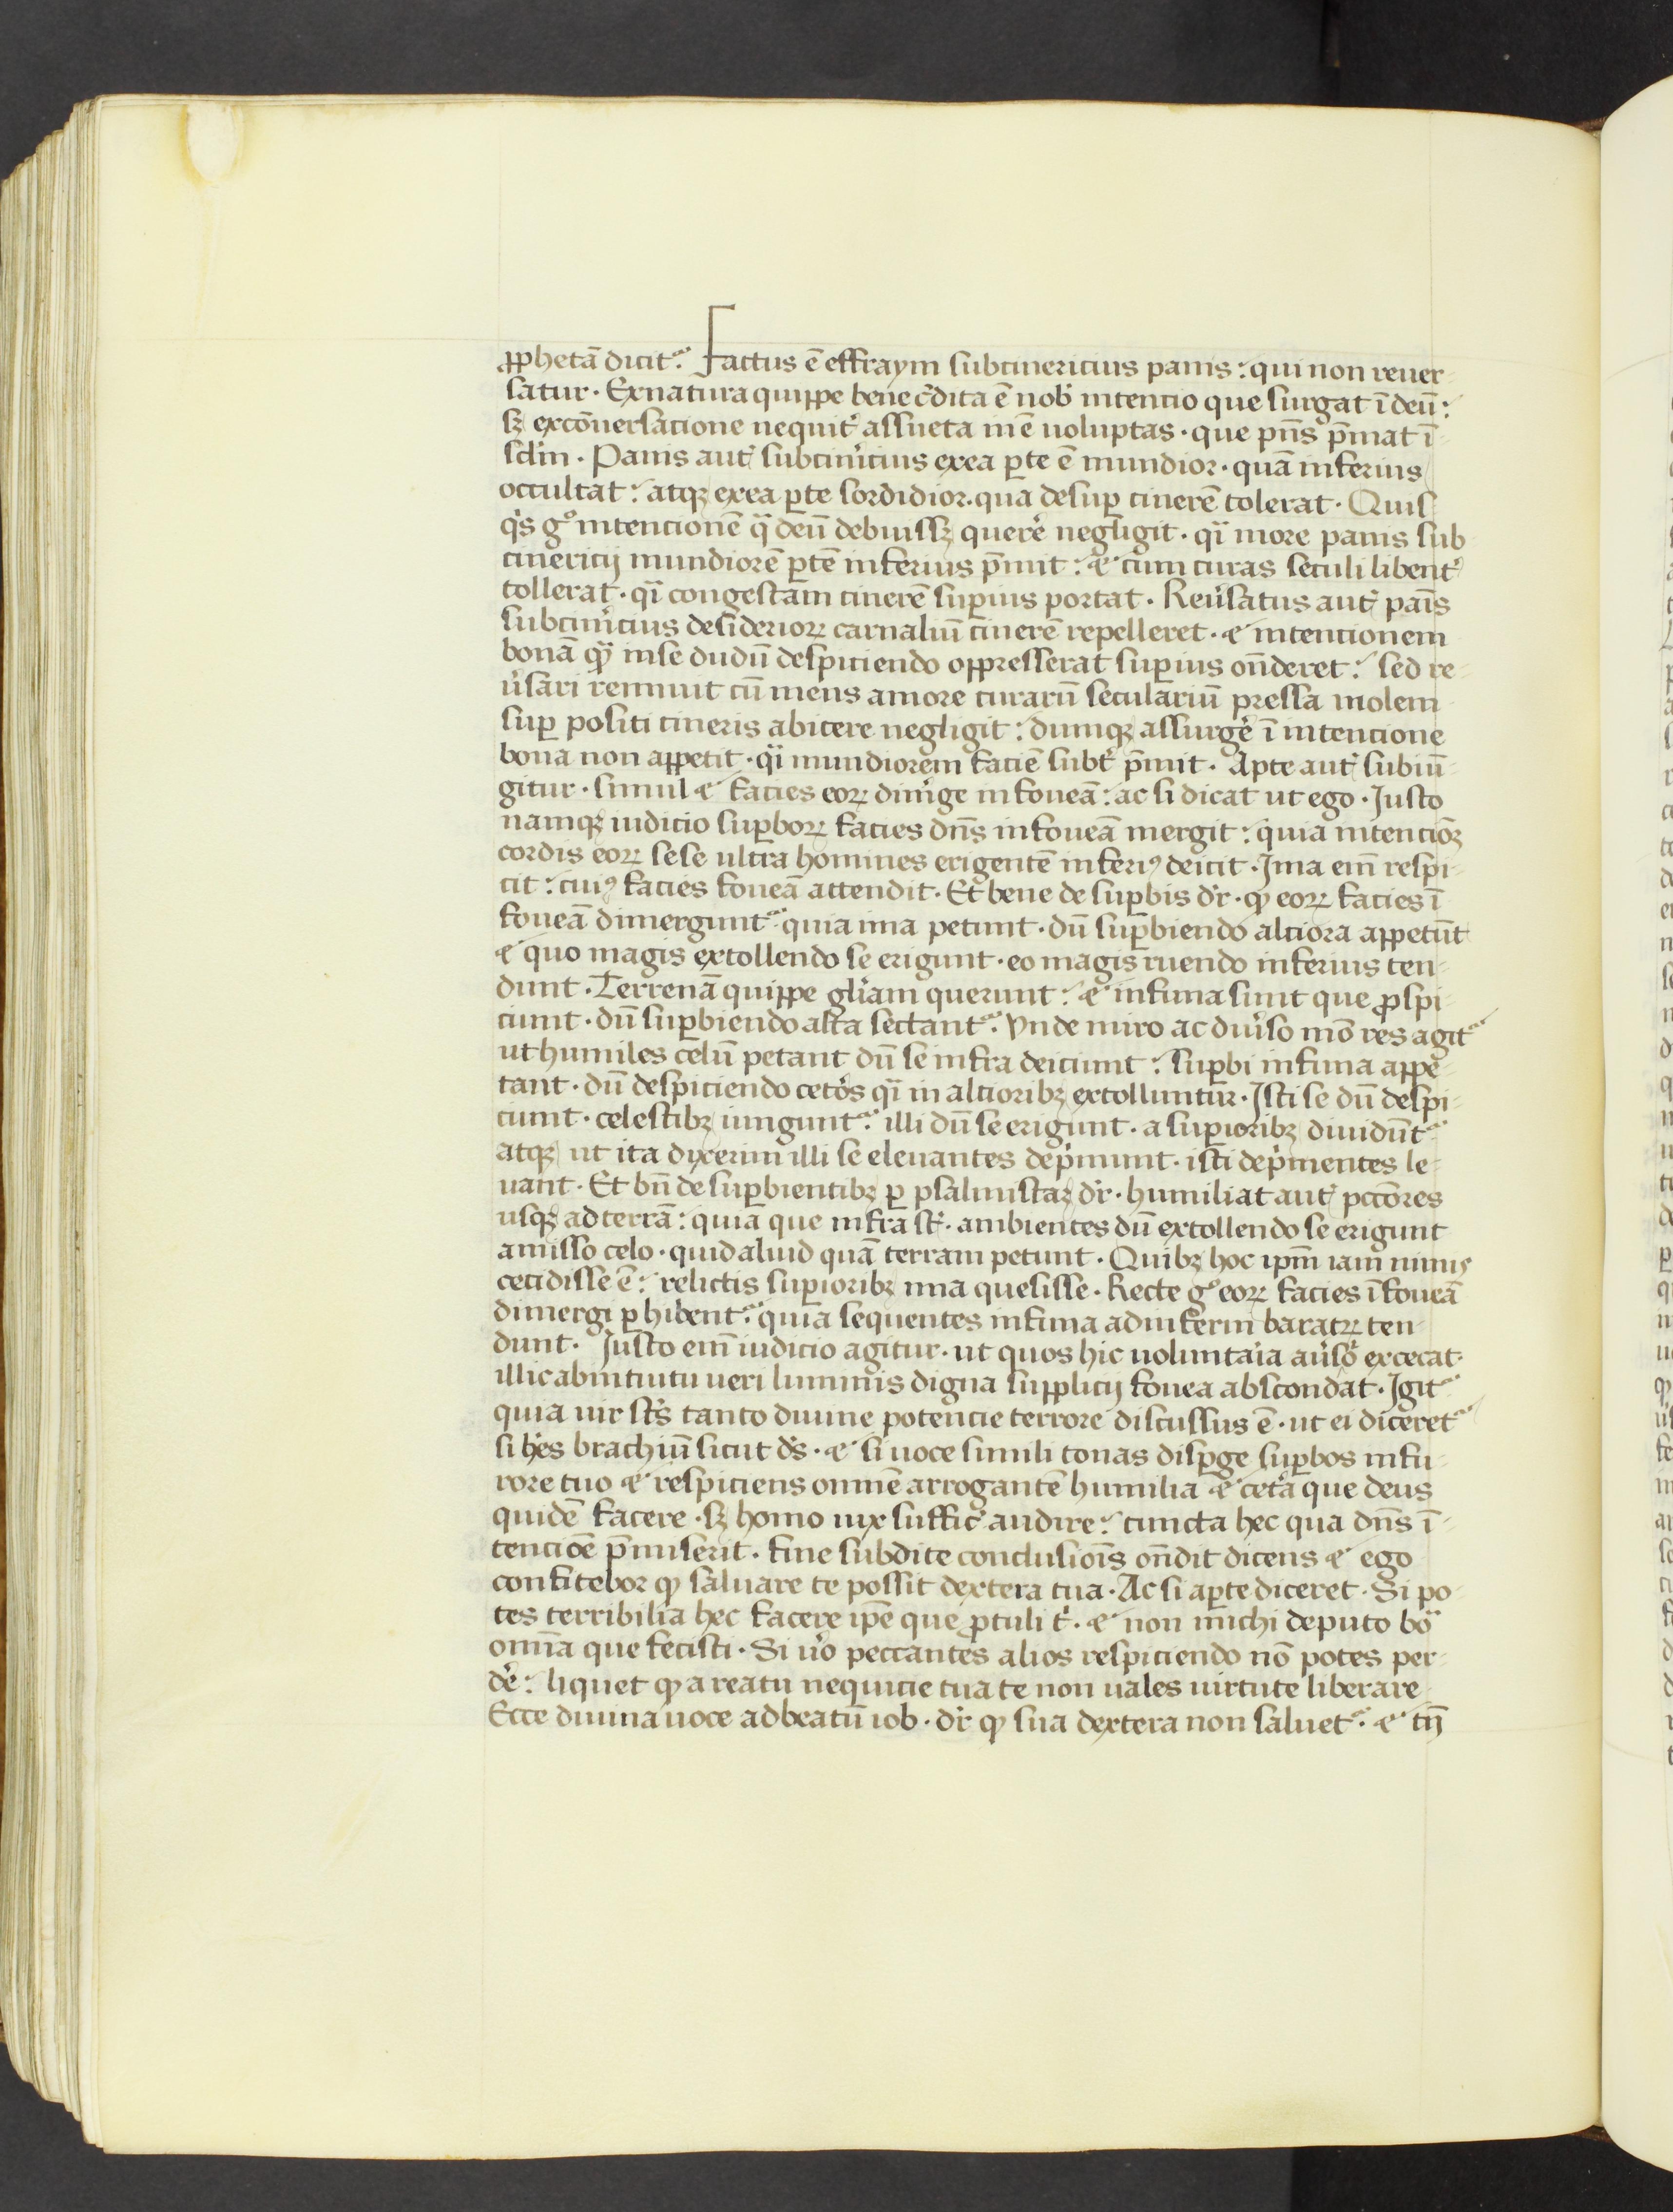 ꝓphetã dicit᷑. Factus ē effraym subcinericius panis: qui non reuer-
satur. Ex natura quippe bene ↄ̃dita ē nob̾ intencio que surgat ĩ deũ:
sꝫ ex cõuersacione nequit̾ assueta inē uoluptas. que pñs p̃mat ĩ-
fc̃lm. Panis aut̾ subcin̾icius ex ea ꝑte ē mundior. quã inferius
occultat: atqꝫ ex ea ꝑte sordidior. qua desuꝑ cinerē tolerat. Quis
q̾s gͦ intencionē qͣ deũ debuissꝫ querē negligit. q̾ more panis sub
cinericij mundiorē ꝑtē inferius p̃mit: ⁊ cum curas seculi libent̾
tollerat. q̾ congestam cinerē suꝑius portat. Reu̾satus aut̾ pais̄
subcin̾icius desiderioꝝ carnaliũ cinerē repelleret. ⁊ intencionem
bonã qͣ̃ in se dudũ despiciendo oppresserat suꝑius oñderet: sed re-
u̾sari rennuit cũ mens amore curarũ seculariũ pressa molem
suꝑ positi cineris abicere negligit: dumqꝫ assurgē ĩ intencione
bona non appetit. q̾ mundiorem faciē subt̾ p̃mit. Apte aut̾ subiũ-
gitur. simul ⁊ facies eoꝝ dim̾ge in foueã: ac si dicat ut ego. Justo
namqꝫ iudicio suꝑboꝝ facies dñs in foueã mergit: quia intencioꝫ̃
cordis eoꝝ sese ultra homines erigentē inferiꝰ deicit. Ima em̃ respi-
cit: cuiꝰ facies foueã attendit. Et bene de suꝑbis dr̃. ꝙ eoꝝ facies ĩ
foueã dimergunt᷑. quia ima petunt. dũ suꝑbiendo alciora appetũt
⁊ quo magis extollendo se erigunt. eo magis ruendo inferius ten-
dunt. Terrenã quippe gl̾iam querunt: ⁊ infima sunt que ꝓspi-
ciunt. dũ suꝑbiendo alta sectant᷑. Vnde miro ac diu̾so mõ res agit᷑
ut humiles celũ petant dũ se infra deiciunt: suꝑbi infima appe-
tant. dũ despiciendo cet̾os q̾ in alcioribꝫ extolluntur. Isti se dũ despi-
ciunt. celestibꝫ iungunt᷑. illi dũ se erigunt. a suꝑioribꝫ diuidũt᷑
atqꝫ ut ita dixerim illi se eleuantes dep̾munt. isti dep̾mentes le-
uant. Et bñ de suꝑbientibꝫ ꝑ psalmistaꝫ dr̃. humiliat aut̾ pcc̃ores
usqꝫ ad terrã: quia que infra st̾. ambientes dũ extollendo se erigunt
amisso celo. quid aliud quã terram petunt. Quibꝫ hoc ip̃m iam nimis
cecidisse ē: relictis suꝑioribꝫ ima quesisse. Recte gͦ eoꝝ facies ĩ foueã
dimergi ꝑhibent᷑. quia sequentes infima ad inferni baratꝝ ten-
dunt. Justo em̃ iudicio agitur. ut quos hic uoluntaia̾ au̾sõ excecat.
illic ab intuitu ueri luminis digna supplicij fouea abscondat. Igit᷑
quia uir sc̃s tanto diuine potencie terrore discussus ē. ut ei diceret᷑
si hēs brachiũ sicut ds̃. ⁊ si uoce simili tonas disꝑge suꝑbos in fu-
rore tuo ⁊ respiciens omnē arrogantē humilia ⁊ cet̾a que deus
quidē facere. sꝫ homo uix suffic̾ audire: cuncta hec qua dñs ĩ-
tencioē p̃miserit. fine subdite conclusiois̄ oñdit dicens ⁊ ego
confitebor ꝙ saluare te possit dextera tua. Ac si aꝑte diceret. Si po-
tes terribilia hec facere ip̃e que ꝓtuli t̾. ⁊ non michi deputo boͣ
omĩa que fecisti. Si u̾o peccantes alios respiciendo nõ potes per-
dē: liquet ꝙ a reatu nequicie tua te non uales uirtute liberare
Ecce diuina uoce ad beatũ iob. dr̃ ꝙ sua dextera non saluet᷑. ⁊ tñ